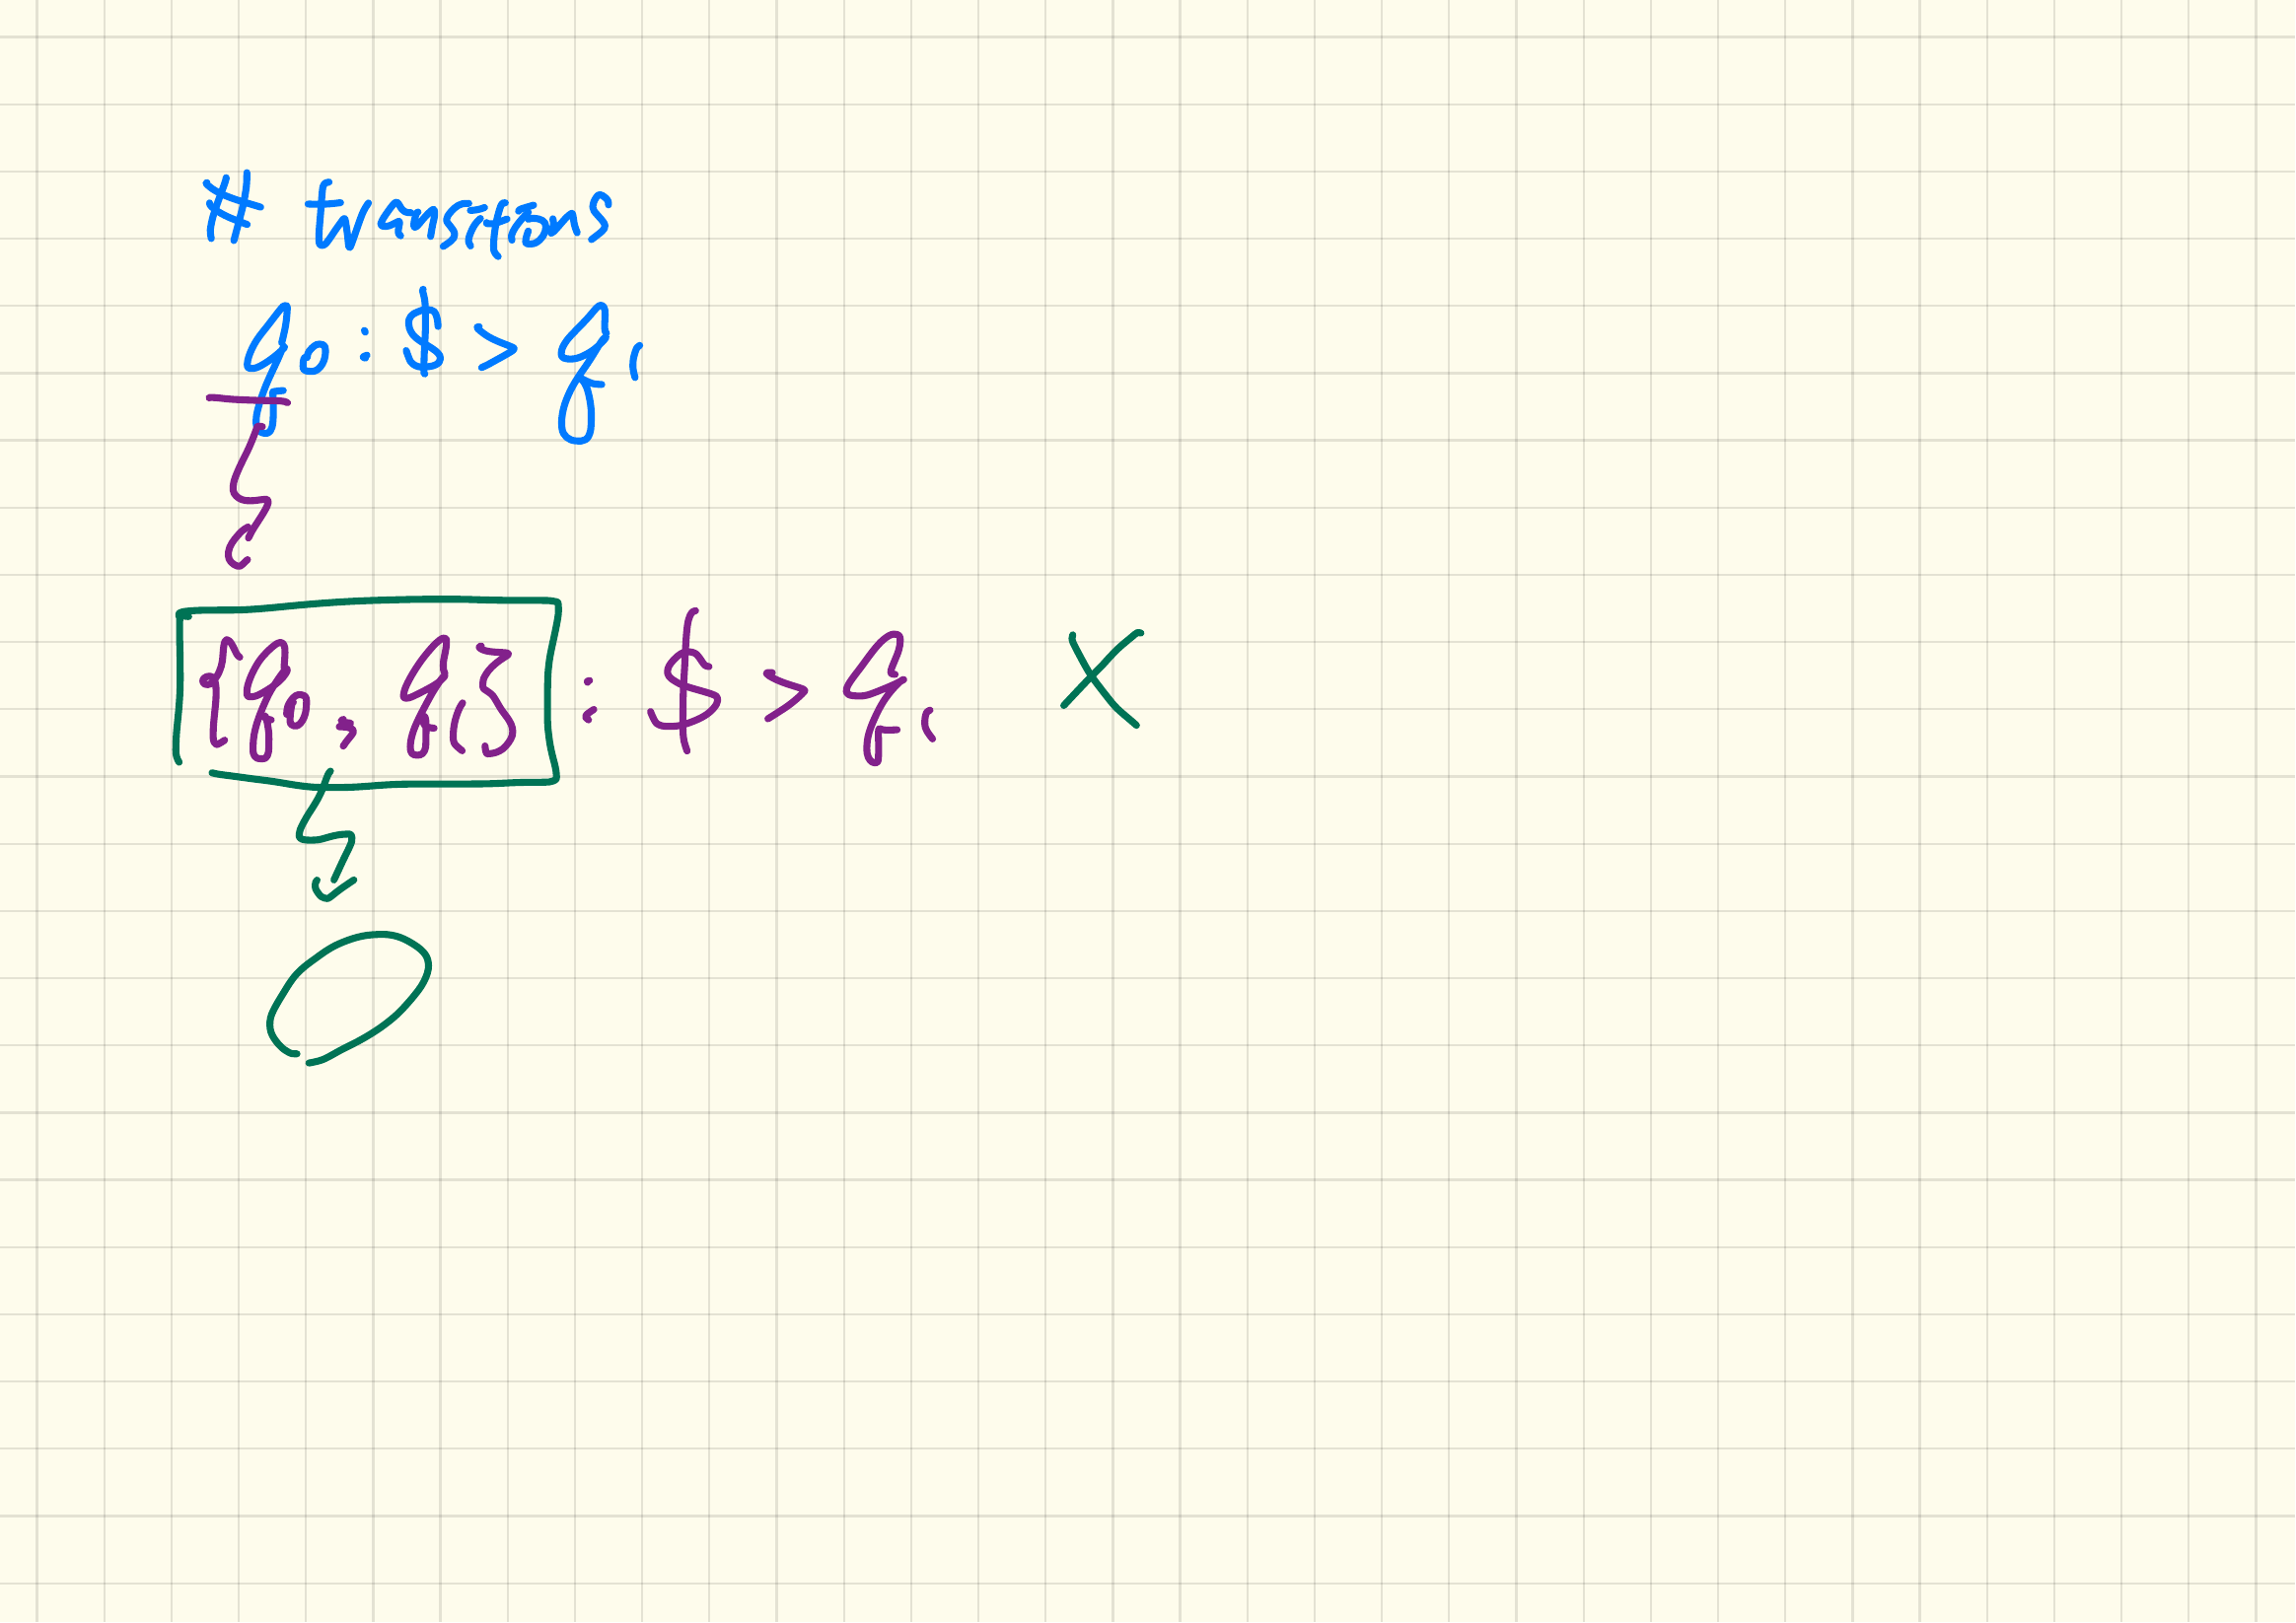 # transitions
q0 : $ > q1
{q0, q1} : $ > q1 X